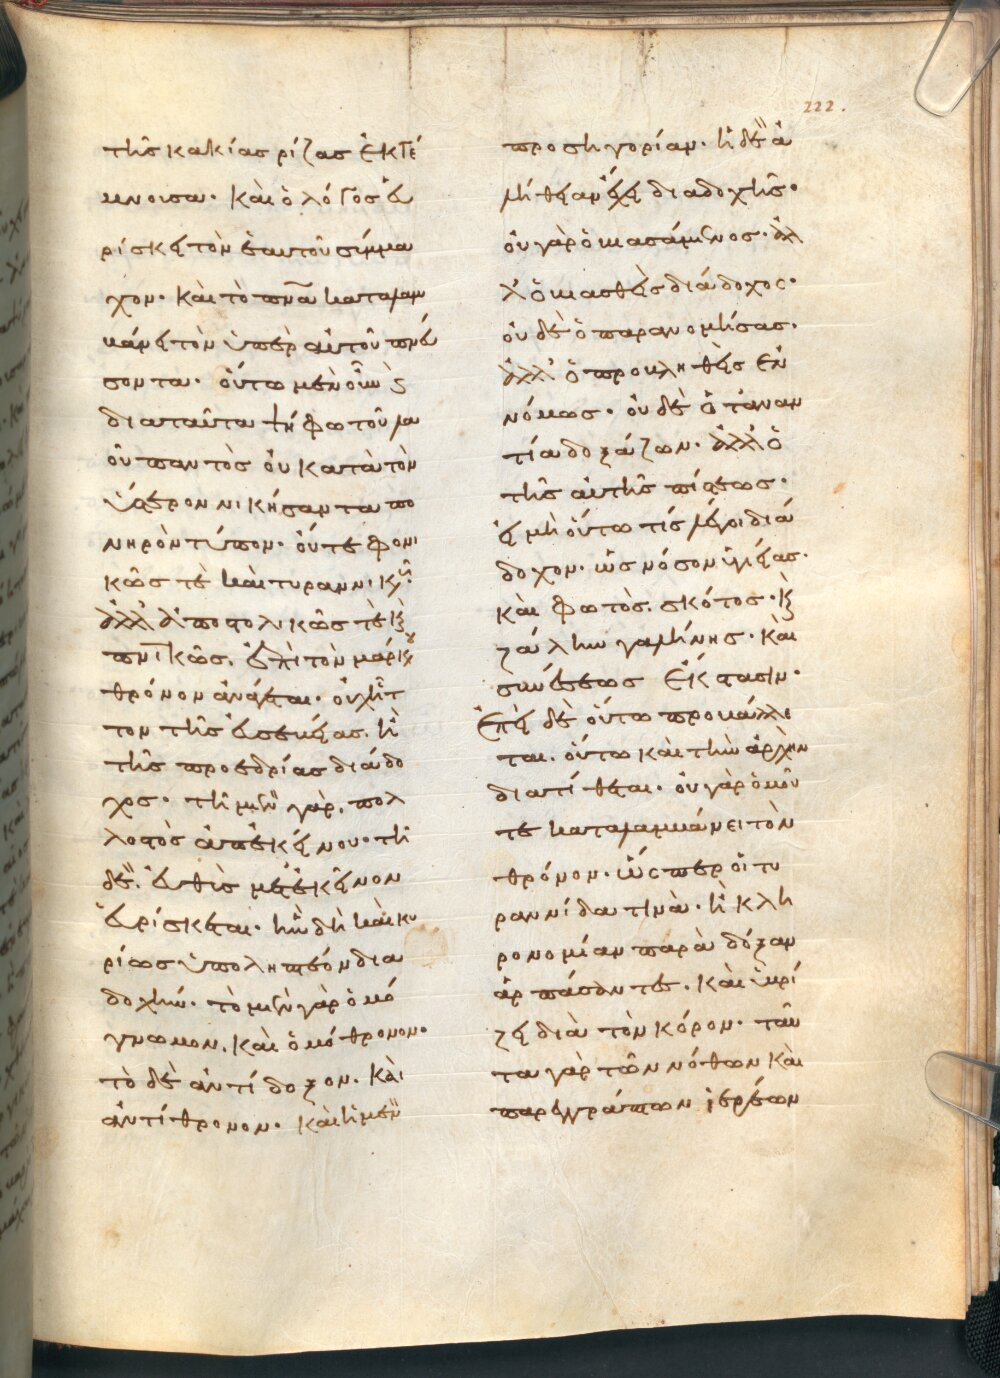 τῆς κακίας ρίζας ἐκτέ
μνουσα· καὶ ὁ λόγος εὑ
ρίσκει τὸν ἑαυτοῦ σύμμα
χον· καὶ τὸ πν̅α καταλαμ
βάνει τὸν ὑπὲρ αὐτοῦ πνεύ
σοντα· οὕτω μὲν οὖν ϗ
διαταῦτα ψήφω τοῦ λα
οῦ παντὸς οὐ κατὰ τὸν
ὕστερον νικήσαντα πο
νηρὸν τύπον· οὔτε φονι
κῶς τὲ καὶ τυραννικῶς·
ἀλλ' ἀποστολικῶς τὲ ϗ
πν̅ικῶς. ἐπὶ τὸν μάρκου
θρόνον ἀνάγεται· οὐχ ἧτ
τον τῆς εὐσεβείας. ἢ
τῆς προεδρίας διάδο
χος· τῆ μὲν γὰρ. πολ
λοστὸς ἀπεκείνου· τῆ
δὲ. εὐθὺς μετεκεῖνον
εὑρίσκεται· ἣν δὴ καὶ κυ
ρίως ὑποληπτέον δια
δοχήν· τὸ μὲν γὰρ ὁμό
γνωμον. καὶ ὁμόθρονον·
τὸ δὲ ἀντίδοξον. καὶ
ἀντίθρονον· καὶ ἡ μὲν
προσηγορίαν· ἡ δὲ ἀ
λήθειαν ἔχει διαδοχῆς·
οὐ γὰρ ὁ βιασάμενος· ἀλ
λ' ὁ βιασθεὶς διάδοχος·
οὐ δὲ ὁ παρανομήσας·
ἀλλ' ὁ προβληθεὶς ἐν
νόμως· οὐ δὲ ὁ τἀναν
τία δοξάζων· ἀλλ' ὁ
τῆς αὐτῆς πίστεως·
εἰ μὴ οὕτω τίς λέγοι διά
δοχον· ὡς νόσον ὑγιείας·
καὶ φωτὸς. σκότος· ϗ
ζάλην γαλήνης· καὶ
συνέσεως ἔκστασιν·
Ἐπεὶ δὲ οὕτω προβάλλε
ται. οὕτω καὶ τὴν ἀρχὴν
διατίθεται· οὐ γὰρ ὁμοῦ
τε καταλαμβάνει τὸν
θρόνον· ὥσπερ οἱ τυ
ραννίδα τινὰ· ἢ κλη
ρονομίαν παρὰ δόξαν
ἁρπάσαντες· καὶ ὑβρί
ζει διὰ τὸν κόρον· ταῦ
τα γὰρ τῶν νόθων καὶ
παρεγγράπτων ἱερέων
222.